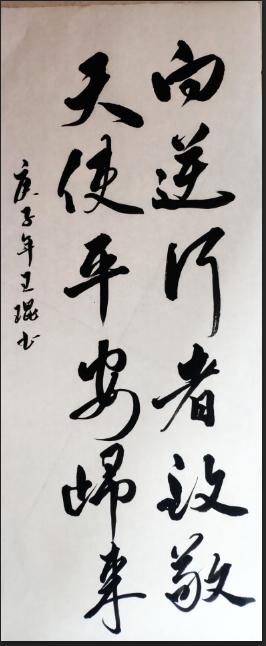 向逆行者致敬
天使平安歸来
庚子年王琨书